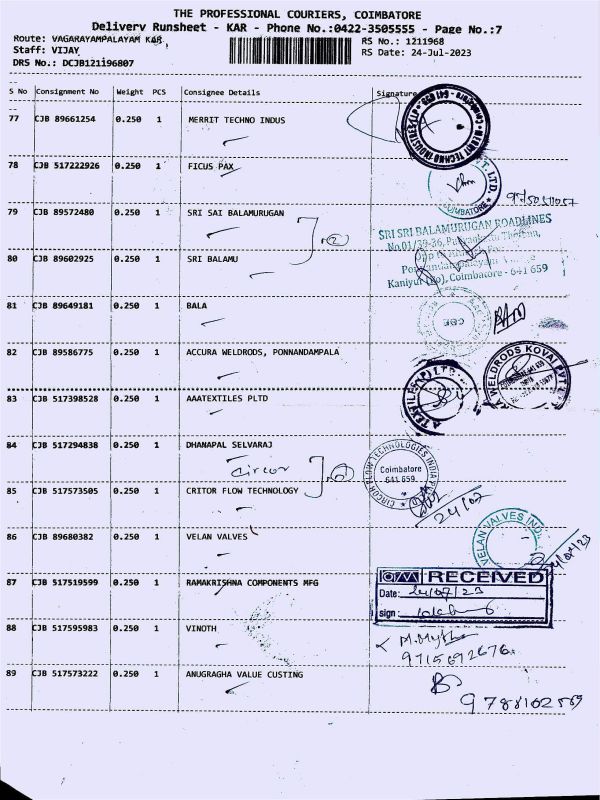 THE PROFESSIONAL COURIERS, COIMBATORE
Delivery Runsheet - KAR - Phone No.:0422-3505555 - Page No.:7
Route: VAGARAYAMPALAYAM KAR
RS No.: 1211968
Staff: VIJAY
RS Date: 24-Jul-2023
DRS No.: DCJB121196807
S No Consignment No Weight PCS Consignee Details Signature
77 CJB 89661254 0.250 1 MERRIT TECHNO INDUS
78 CJB 517222926 0.250 1 FICUS PAX
T. LTD.
COIMBATORE
79 CJB 89572480 0.250 1 SRI SAI BALAMURUGAN
SRI SRI BALAMURUGAN ROADLINES
80 CJB 89602925 0.250 1 SRI BALAMU
Coimbatore - 641 659
81 CJB 89649181 0.250 1 BALA
CBE
82 CJB 89586775 0.250 1 ACCURA WELDRODS, PONNANDAMPALA
WELDRODS KOVAI PVT
83 CJB 517398528 0.250 1 AAATEXTILES PLTD
84 CJB 517294838 0.250 1 DHANAPAL SELVARAJ
Circor
CIRCOR FLOW TECHNOLOGIES INDIA
Coimbatore
641 659.
85 CJB 517573505 0.250 1 CRITOR FLOW TECHNOLOGY
24/07
86 CJB 89680382 0.250 1 VELAN VALVES
VELAN VALVES IND
87 CJB 517519599 0.250 1 RAMAKRISHNA COMPONENTS MFG
RECEIVED
Date: 24/07/23
sign:
88 CJB 517595983 0.250 1 VINOTH
9715692676
89 CJB 517573222 0.250 1 ANUGRAGHA VALUE CUSTING